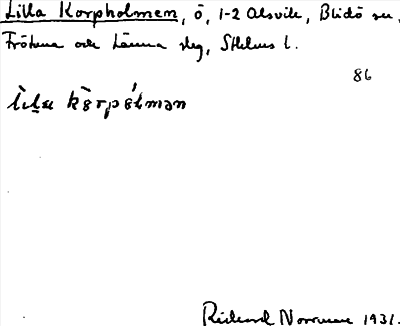 Lilla Korpholmen, ö, 1-2 Alsvik, Blidö sn,
Frötuna och Länna slg, Sthlms l.
86
Rickard Norrman 1931.